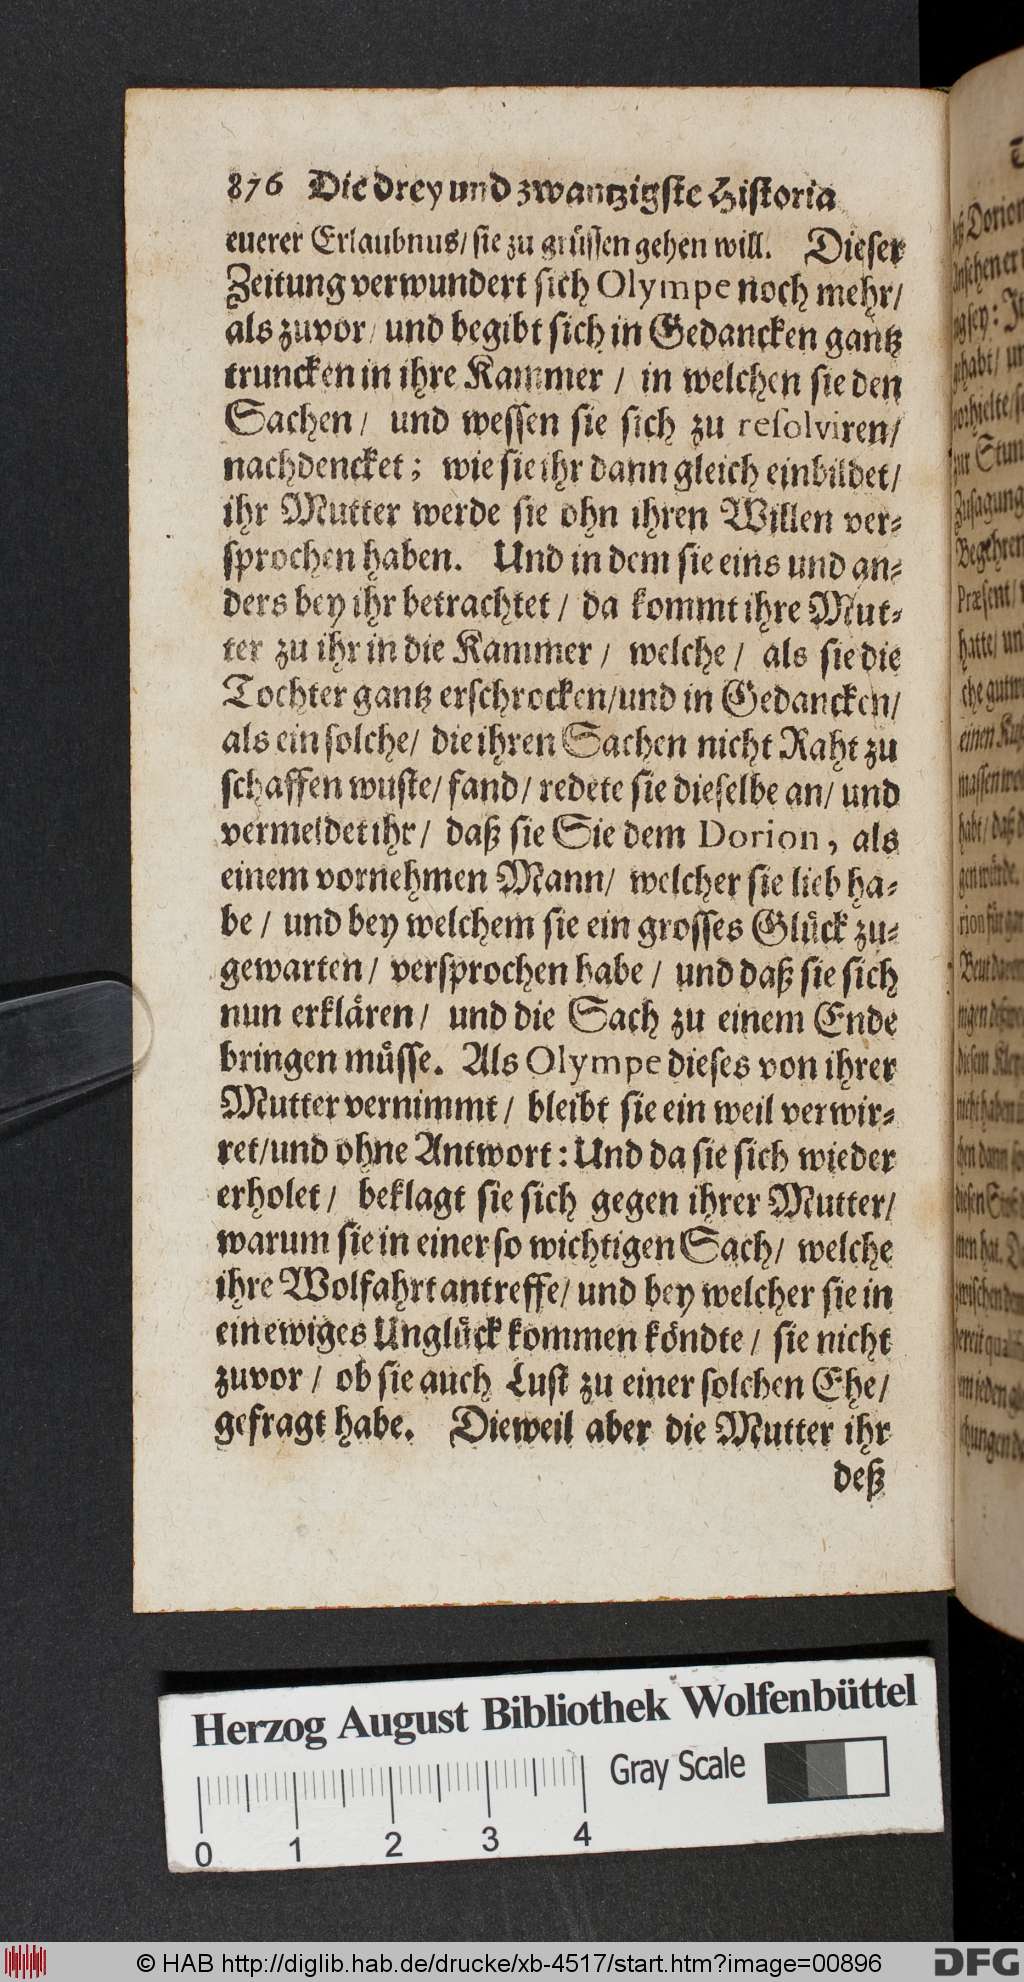 876 Die drey und zwantzigste Historia
euerer Erlaubnus/ sie zu grüssen gehen will. Dieser
Zeitung verwundert sich Olympe noch mehr/
als zuvor/ und begibt sich in Gedancken gantz
truncken in ihre Kammer / in welchen sie den
Sachen/ und wessen sie sich zu resolviren/
nachdencket; wie sie ihr dann gleich einbildet/
ihr Mutter werde sie ohn ihren Willen ver-
sprochen haben. Und in dem sie eins und an-
ders bey ihr betrachtet / da kommt ihre Mut-
ter zu ihr in die Kammer / welche / als sie die
Tochter gantz erschrocken/und in Gedancken/
als ein solche/ die ihren Sachen nicht Raht zu
schaffen wuste/ fand/ redete sie dieselbe an/ und
vermeldet ihr/ daß sie Sie dem Dorion, als
einem vornehmen Mann/ welcher sie lieb ha-
be / und bey welchem sie ein grosses Glück zu-
gewarten/ versprochen habe / und daß sie sich
nun erklären/ und die Sach zu einem Ende
bringen müsse. Als Olympe dieses von ihrer
Mutter vernimmt / bleibt sie ein weil verwir-
ret/und ohne Antwort: Und da sie sich wieder
erholet/ beklagt sie sich gegen ihrer Mutter/
warum sie in einer so wichtigen Sach/ welche
ihre Wolfahrt antreffe/ und bey welcher sie in
ein ewiges Unglück kommen köndte / sie nicht
zuvor / ob sie auch Lust zu einer solchen Ehe/
gefragt habe. Dieweil aber die Mutter ihr
deß
Herzog August Bibliothek Wolfenbüttel
Gray Scale
0 1 2 3 4
© HAB http://diglib.hab.de/drucke/xb-4517/start.htm?image=00896
DFG